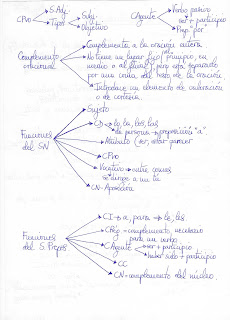 CPvo → S.Adj.
Tipos → Subj.
Objetivo
CAgente → Verbo pasivo
ser + participio
Prep. "por"
Complemento oracional
Complementa a la oración entera
No tiene un lugar fijo (principio, en
medio o al final), pero está separado
por una coma del resto de la oración
Introduce un elemento de valoración
o de certeza.
Funciones del SN
Sujeto
CD → lo, la, los, las
de persona → preposición "a"
Atributo (ser, estar, parecer
CPvo
Vocativo → entre comas
se dirige a un tú
CN - Aposición
Funciones del S. Prepos
CI → a, para → le, les
CRég → complemento necesario
para un verbo
CAgente → ser + participio
haber sido + participio
CC
CN - complemento del núcleo.